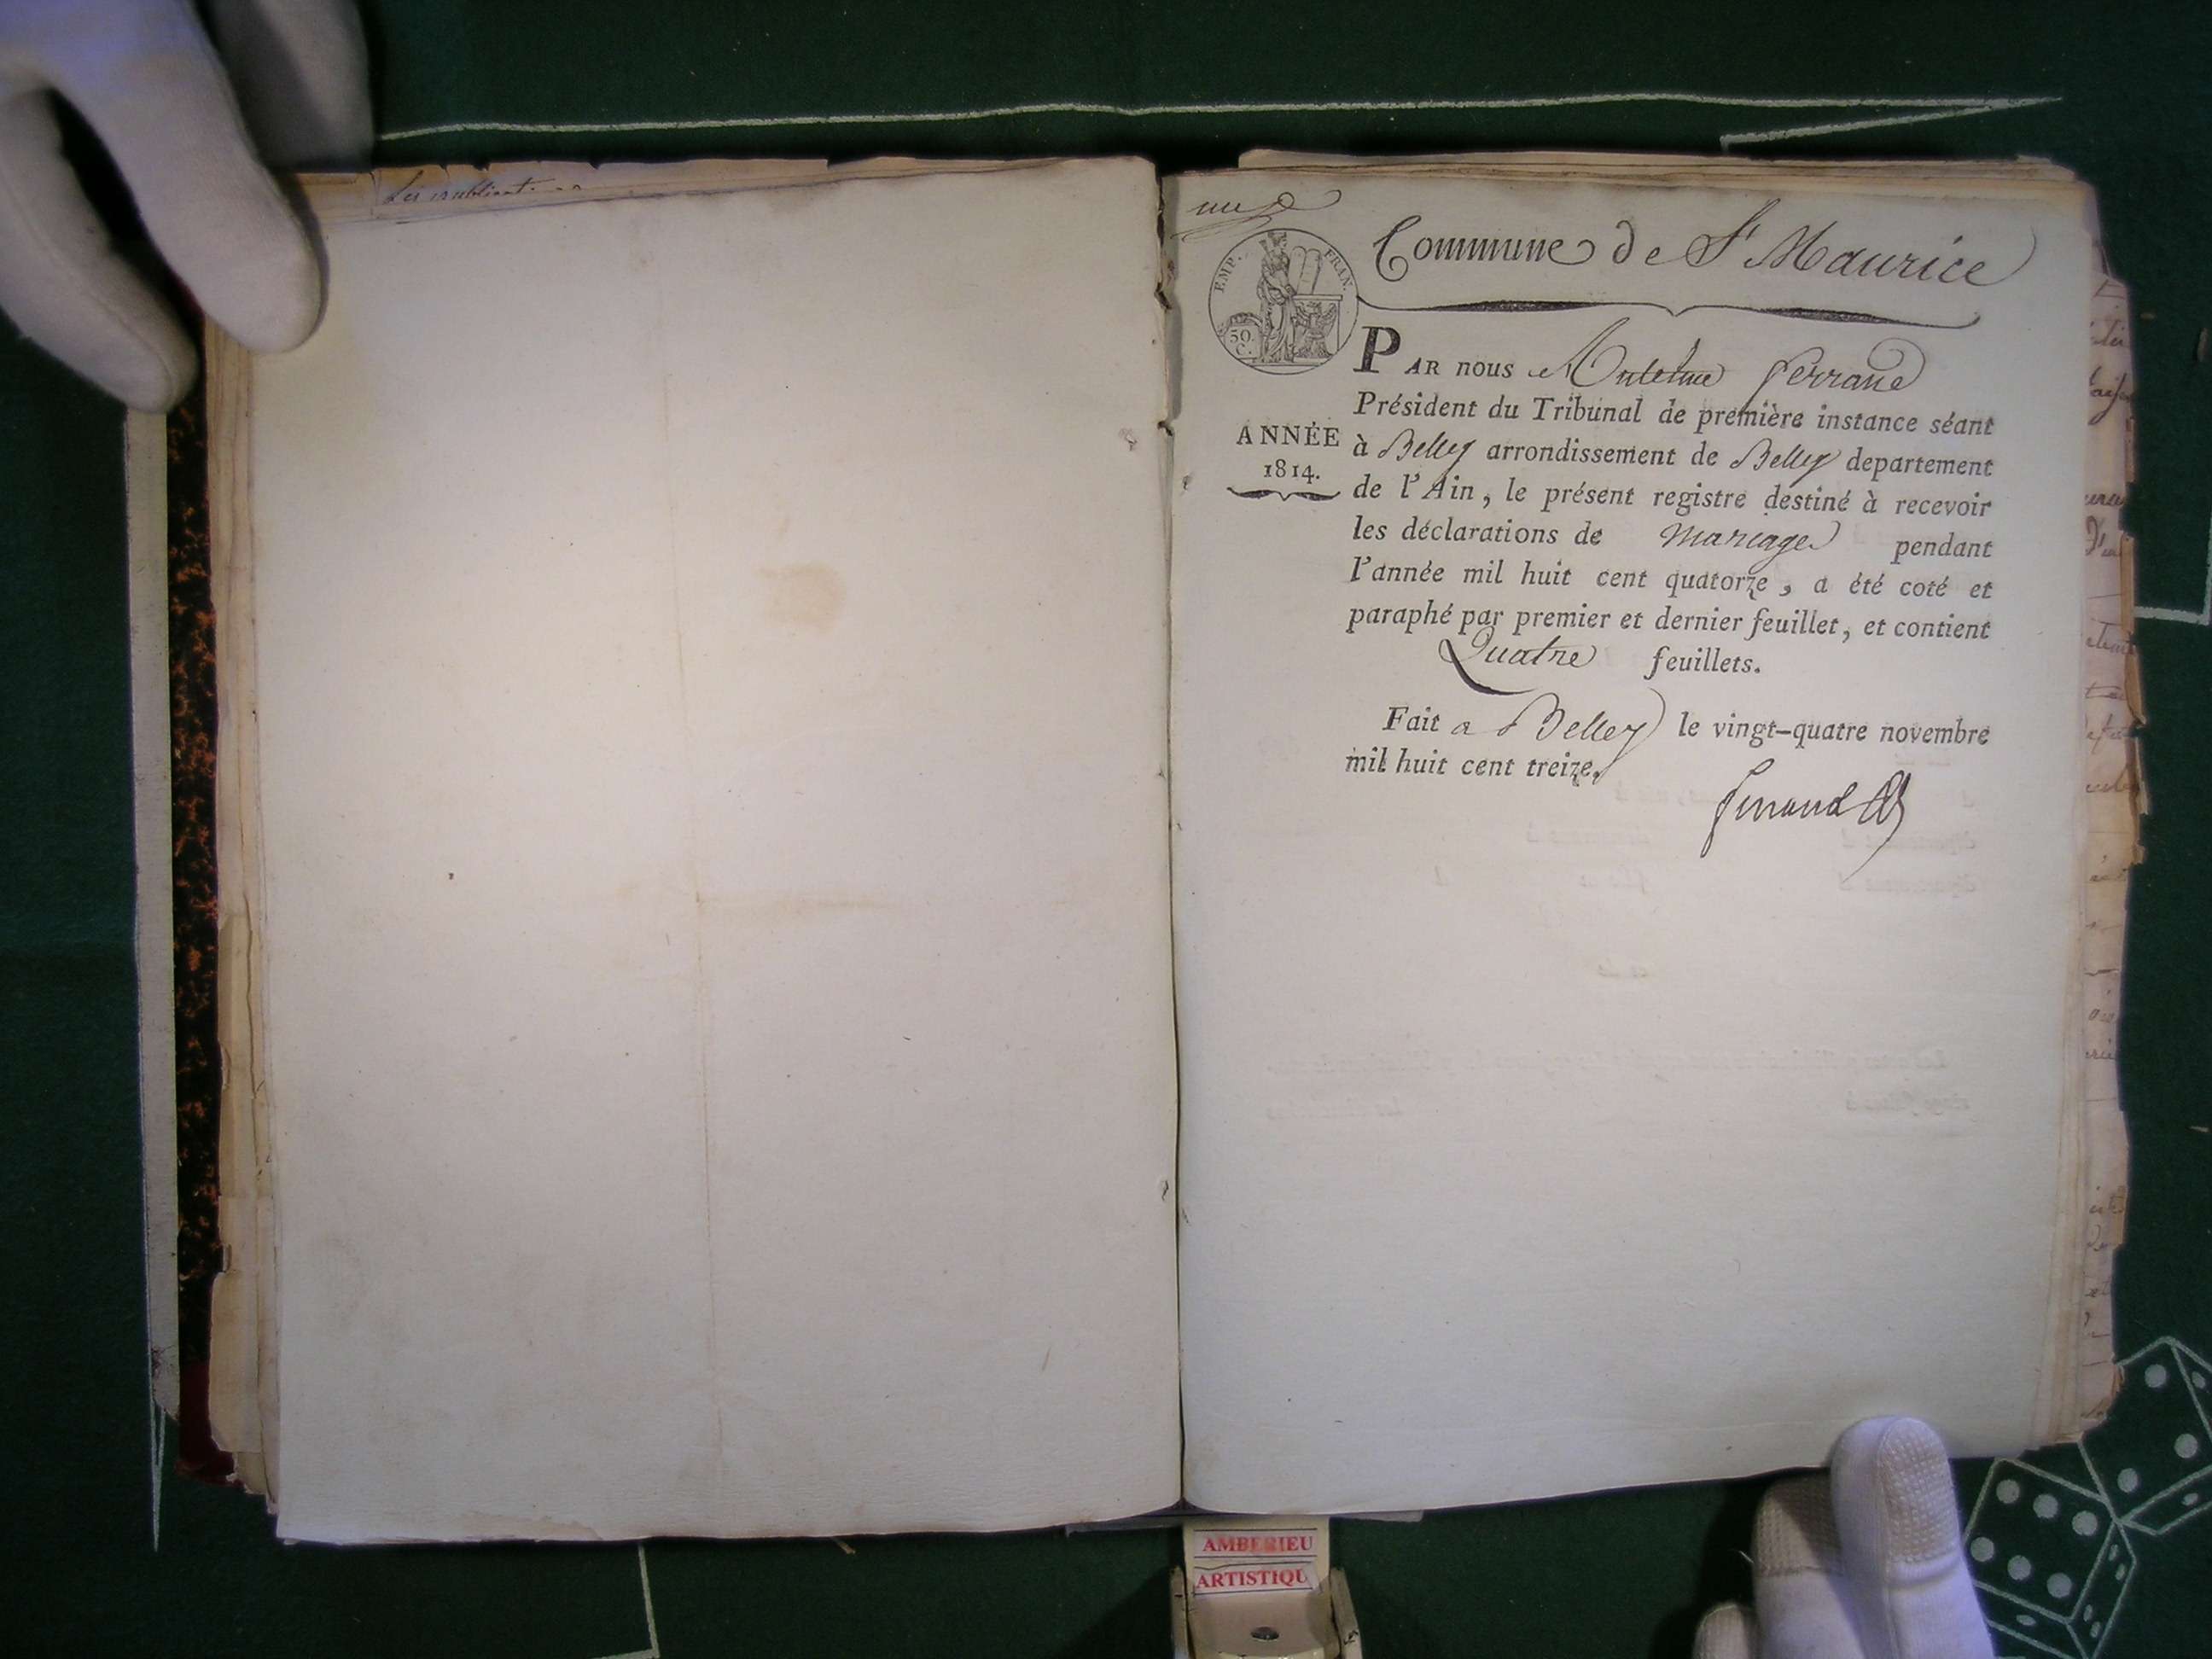 Les publications
une
Commune de St Maurice
EMP. FRAN.
50.
C.
PAR nous Antelme Ferrand
Président du Tribunal de première instance séant
ANNÉE
1814.
à Belley arrondissement de Belley departement
de l'Ain, le présent registre destiné à recevoir
les déclarations de Mariage pendant
l'année mil huit cent quatorze, a été coté et
paraphé par premier et dernier feuillet, et contient
Quatre feuillets.
Fait a Belley le vingt-quatre novembre
mil huit cent treize.
Ferrand
AMBERIEU
ARTISTIQU